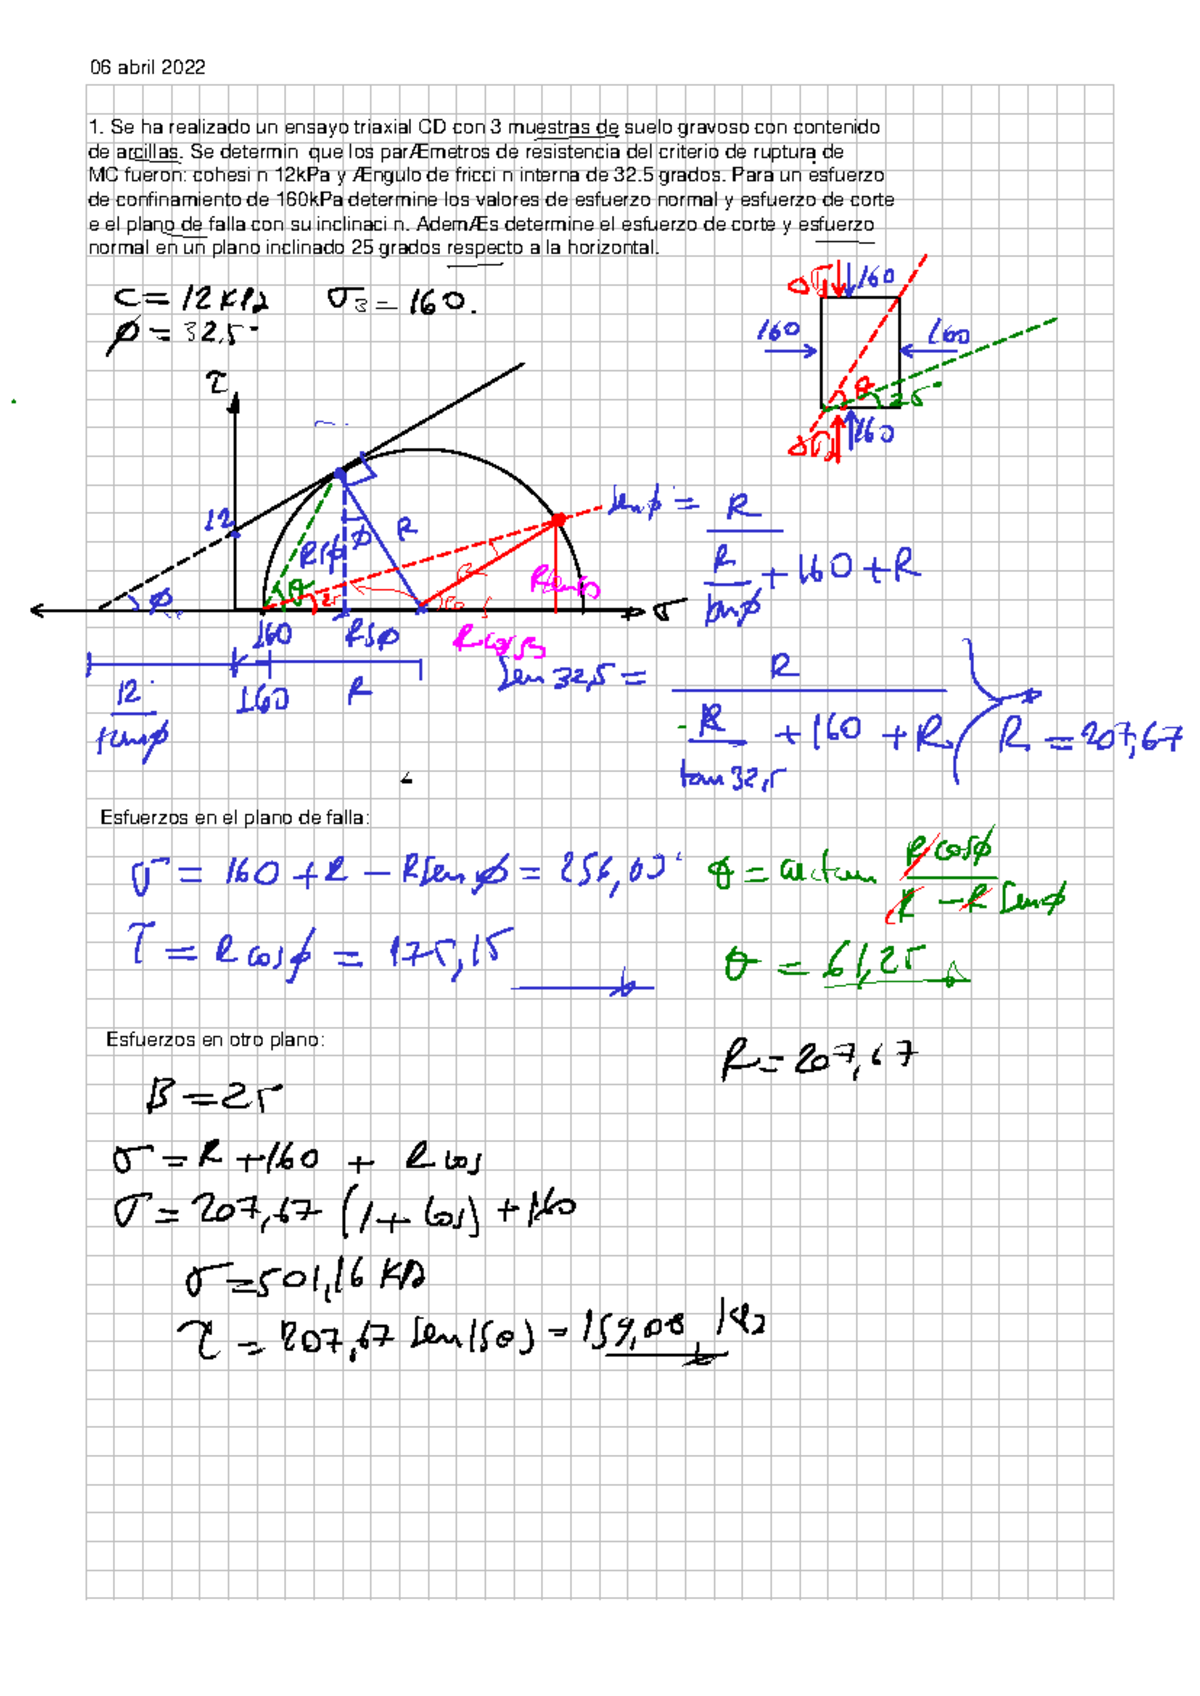 06 abril 2022
1. Se ha realizado un ensayo triaxial CD con 3 muestras de suelo gravoso con contenido
de arcillas. Se determin que los parÆmetros de resistencia del criterio de ruptura de
MC fueron: cohesi n 12kPa y Ængulo de fricci n interna de 32.5 grados. Para un esfuerzo
de confinamiento de 160kPa determine los valores de esfuerzo normal y esfuerzo de corte
e el plano de falla con su inclinaci n. AdemÆs determine el esfuerzo de corte y esfuerzo
normal en un plano inclinado 25 grados respecto a la horizontal.
C = 12 kPa σ3 = 160.
φ = 32.5°
160
160 160
θ 25°
160
τ
12
φ R
φ θ
σ
160
12 / tanφ 160 R
Senφ = R / (R/tanφ + 160 + R)
Sen 32,5 = R / (R/tan 32,5 + 160 + R) R = 207,67
Esfuerzos en el plano de falla:
σ = 160 + R - R Sen φ = 256,09 θ = arctan R cosφ / (R - R Senφ)
τ = R cosφ = 175,15 θ = 61,25
Esfuerzos en otro plano:
R = 207,67
B = 25
σ = R + 160 + R cos
σ = 207,67 (1 + cos) + 160
σ = 501,16 KPa
τ = 207,67 Sen(50) = 159,08 kPa